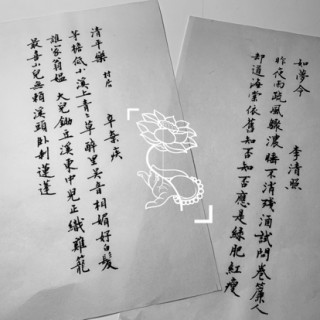 如夢令
李清照
昨夜雨疏風驟濃睡不消殘酒試問卷簾人
却道海棠依舊知否知否應是綠肥紅瘦
清平樂 村居
辛棄疾
茅檐低小溪上青々草醉里吴音相媚好白髮
誰家翁媼 大兒鋤豆溪東中兒正織雞籠
最喜小兒無賴溪頭卧剥蓮蓬